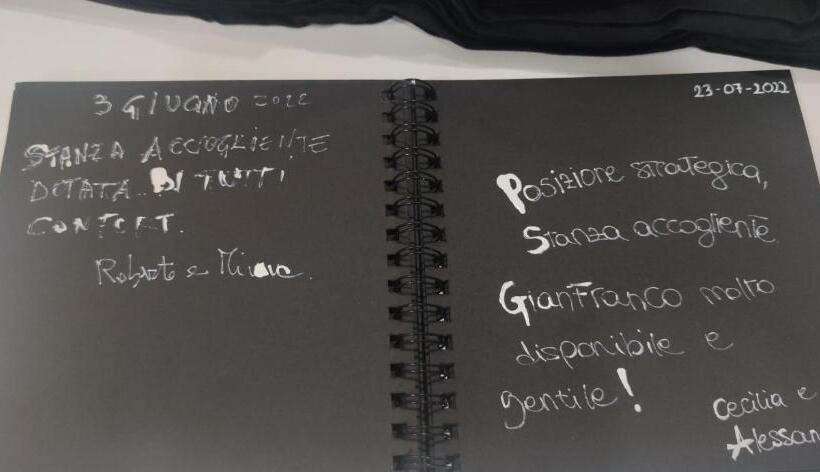 3 GIUGNO 2022
STANZA ACCOGLIENTE
DOTATA DI TUTTI
CONFORT.
Roberto e
23-07-2022
Posizione strategica,
Stanza accogliente
GianFranco molto
disponibile e
gentile!
Cecilia e
Alessan